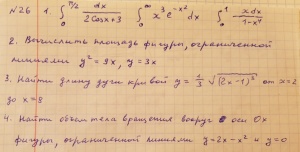 N26 1. ∫₀^{π/2} dx / (2Cosx+3) ∫₀^∞ x³ e^{-x²} dx ∫₀^1 xdx / (1-x⁴)
2. Вычислить площадь фигуры, ограниченной
линиями y² = 9x, y = 3x
3. Найти длину дуги кривой y = 1/3 √(2x-1)³ от x=2
до x=8
4. Найти объем тела вращения вокруг оси Ox
фигуры, ограниченной линиями y=2x-x² и y=0